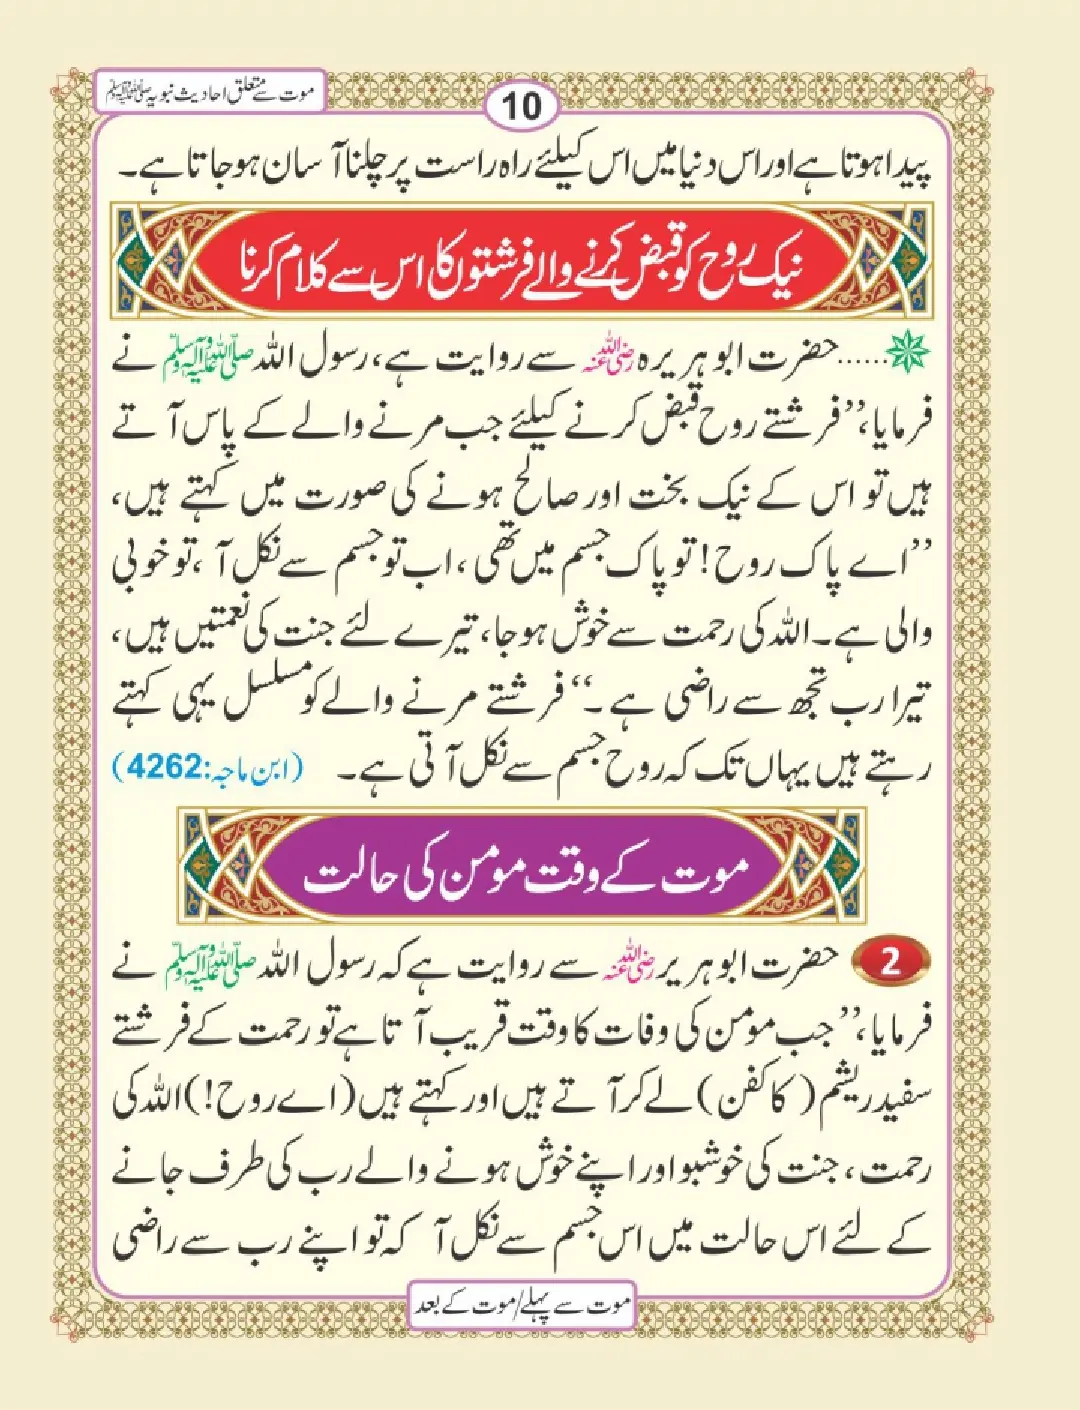 موت سے متعلق احادیث نبویہ ﷺ
10
پیدا ہوتا ہے اور اس دنیا میں اس کیلئے راہ راست پر چلنا آسان ہو جاتا ہے۔
نیک روح کو قبض کرنے والے فرشتوں کا اس سے کلام کرنا
.....حضرت ابو ہریرہ رضی اللہ عنہ سے روایت ہے، رسول اللہ ﷺ نے
فرمایا، ’’فرشتے روح قبض کرنے کیلئے جب مرنے والے کے پاس آتے
ہیں تو اس کے نیک بخت اور صالح ہونے کی صورت میں کہتے ہیں،
’’اے پاک روح! تو پاک جسم میں تھی، اب تو جسم سے نکل آ، تو خوبی
والی ہے۔ اللہ کی رحمت سے خوش ہو جا، تیرے لئے جنت کی نعمتیں ہیں،
تیرا رب تجھ سے راضی ہے۔‘‘ فرشتے مرنے والے کو مسلسل یہی کہتے
رہتے ہیں یہاں تک کہ روح جسم سے نکل آتی ہے۔ (ابن ماجہ:4262)
موت کے وقت مومن کی حالت
2 حضرت ابو ہریر رضی اللہ عنہ سے روایت ہے کہ رسول اللہ ﷺ نے
فرمایا، ’’جب مومن کی وفات کا وقت قریب آتا ہے تو رحمت کے فرشتے
سفید ریشم (کا کفن) لے کر آتے ہیں اور کہتے ہیں (اے روح!) اللہ کی
رحمت، جنت کی خوشبو اور اپنے خوش ہونے والے رب کی طرف جانے
کے لئے اس حالت میں اس جسم سے نکل آ کہ تو اپنے رب سے راضی
موت سے پہلے/موت کے بعد